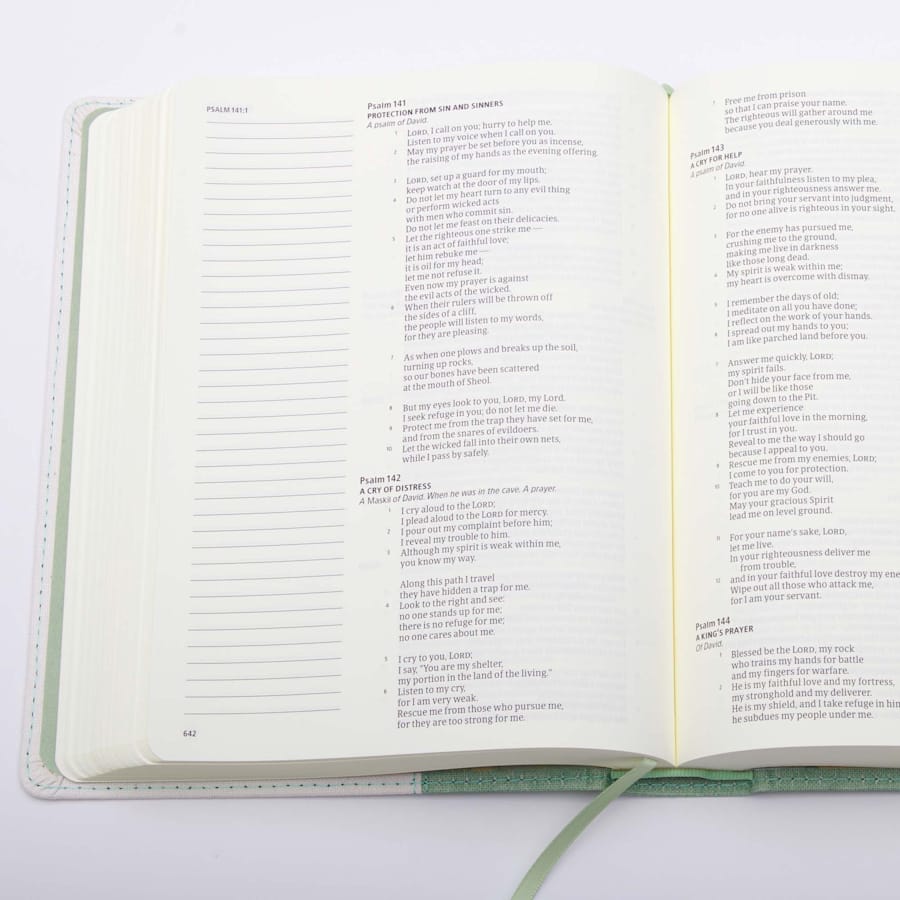 PSALM 141:1
Psalm 141
PROTECTION FROM SIN AND SINNERS
A psalm of David.
1 LORD, I call on you; hurry to help me.
Listen to my voice when I call on you.
2 May my prayer be set before you as incense,
the raising of my hands as the evening offering.
3 LORD, set up a guard for my mouth;
keep watch at the door of my lips.
4 Do not let my heart turn to any evil thing
or perform wicked acts
with men who commit sin.
Do not let me feast on their delicacies.
5 Let the righteous one strike me —
it is an act of faithful love;
let him rebuke me —
it is oil for my head;
let me not refuse it.
Even now my prayer is against
the evil acts of the wicked.
6 When their rulers will be thrown off
the sides of a cliff,
the people will listen to my words,
for they are pleasing.
7 As when one plows and breaks up the soil,
turning up rocks,
so our bones have been scattered
at the mouth of Sheol.
8 But my eyes look to you, LORD, my Lord.
I seek refuge in you; do not let me die.
9 Protect me from the trap they have set for me,
and from the snares of evildoers.
10 Let the wicked fall into their own nets,
while I pass by safely.
Psalm 142
A CRY OF DISTRESS
A Maskil of David. When he was in the cave. A prayer.
1 I cry aloud to the LORD;
I plead aloud to the LORD for mercy.
2 I pour out my complaint before him;
I reveal my trouble to him.
3 Although my spirit is weak within me,
you know my way.
Along this path I travel
they have hidden a trap for me.
4 Look to the right and see:
no one stands up for me;
there is no refuge for me;
no one cares about me.
5 I cry to you, LORD;
I say, "You are my shelter,
my portion in the land of the living."
6 Listen to my cry,
for I am very weak.
Rescue me from those who pursue me,
for they are too strong for me.
642
7 Free me from prison
so that I can praise your name.
The righteous will gather around me
because you deal generously with me.
Psalm 143
A CRY FOR HELP
A psalm of David.
1 LORD, hear my prayer.
In your faithfulness listen to my plea,
and in your righteousness answer me.
2 Do not bring your servant into judgment,
for no one alive is righteous in your sight.
3 For the enemy has pursued me,
crushing me to the ground,
making me live in darkness
like those long dead.
4 My spirit is weak within me;
my heart is overcome with dismay.
5 I remember the days of old;
I meditate on all you have done;
I reflect on the work of your hands.
6 I spread out my hands to you;
I am like parched land before you.
7 Answer me quickly, LORD;
my spirit fails.
Don't hide your face from me,
or I will be like those
going down to the Pit.
8 Let me experience
your faithful love in the morning,
for I trust in you.
Reveal to me the way I should go
because I appeal to you.
9 Rescue me from my enemies, LORD;
I come to you for protection.
10 Teach me to do your will,
for you are my God.
May your gracious Spirit
lead me on level ground.
11 For your name's sake, LORD,
let me live.
In your righteousness deliver me
from trouble,
12 and in your faithful love destroy my ene
Wipe out all those who attack me,
for I am your servant.
Psalm 144
A KING'S PRAYER
Of David.
1 Blessed be the LORD, my rock
who trains my hands for battle
and my fingers for warfare.
2 He is my faithful love and my fortress,
my stronghold and my deliverer.
He is my shield, and I take refuge in him
he subdues my people under me.